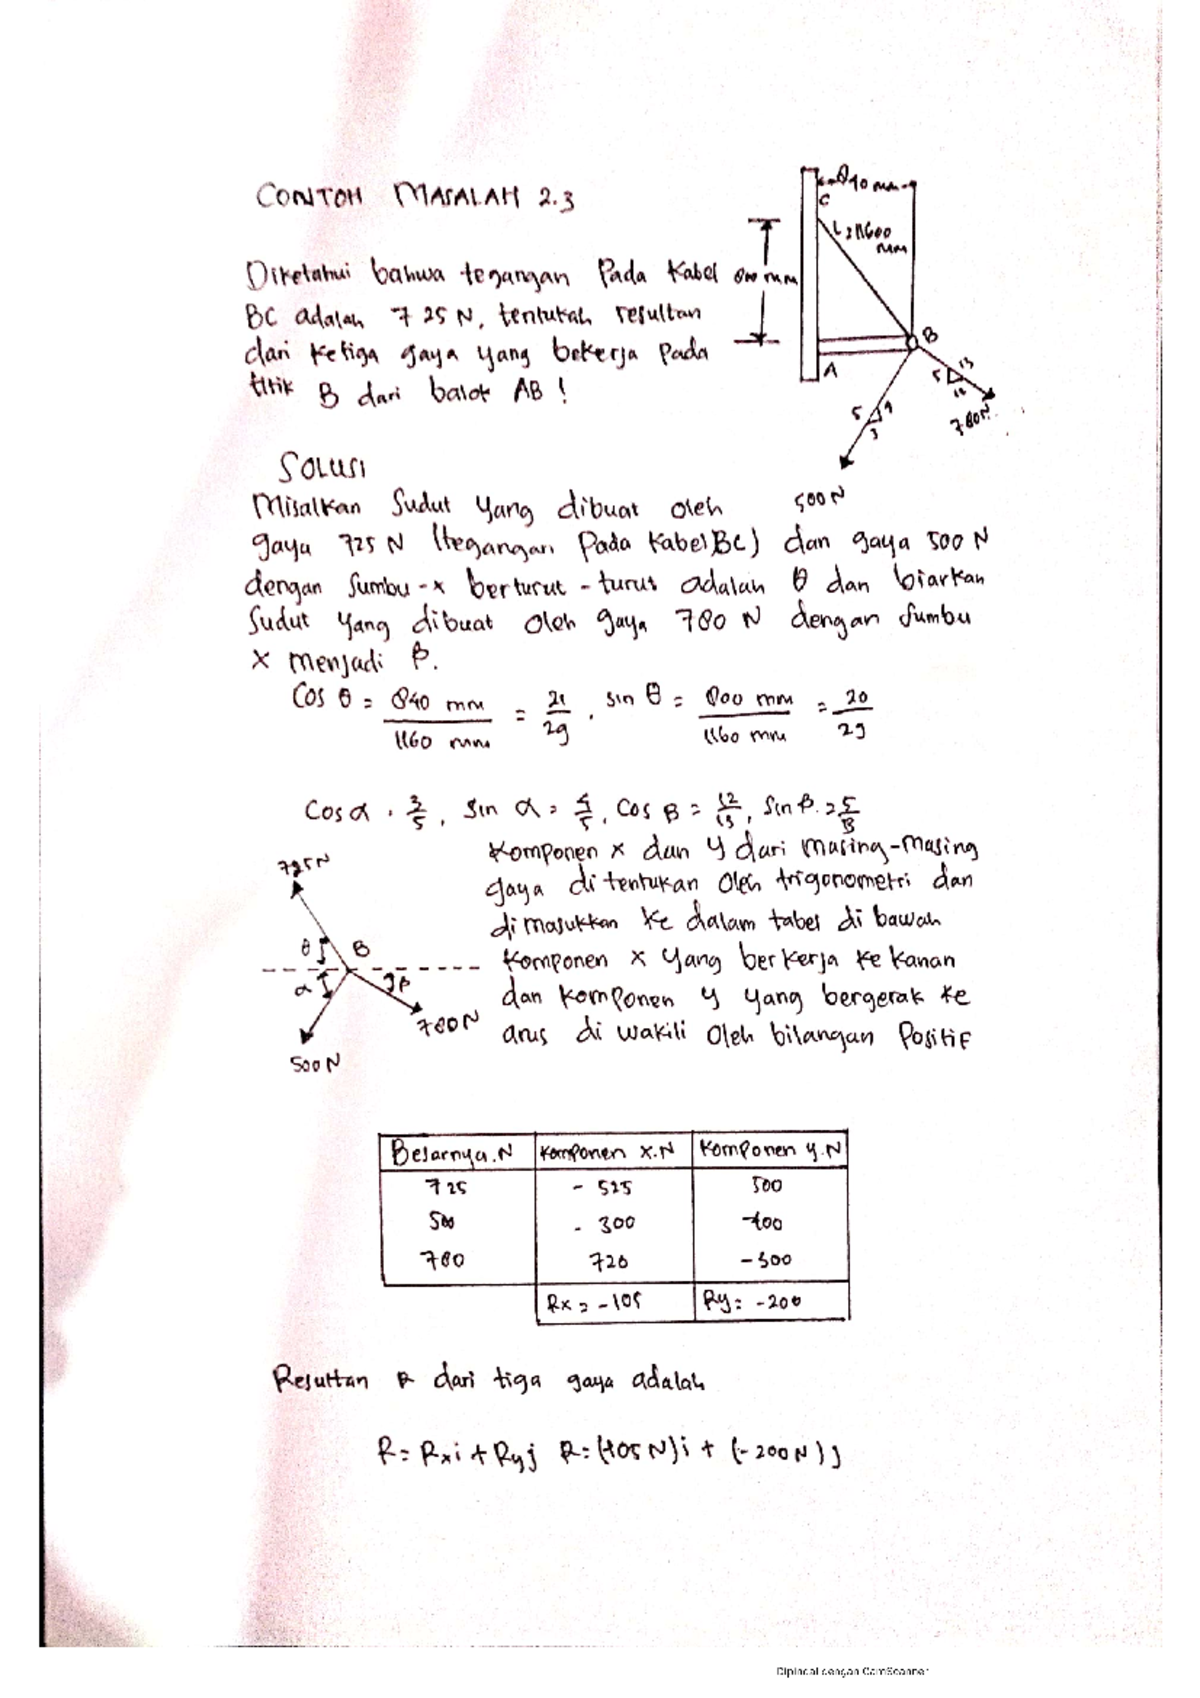 CONTOH MASALAH 2.3
840 mm
C
L = 11600 mm
800 mm
B
A
5 13
12
780 N
5 4
3
500 N
Diketahui bahwa tegangan Pada Kabel
BC adalah 725 N, tentukah resultan
dari ketiga gaya yang bekerja pada
titik B dari balok AB !
SOLUSI
Misalkan Sudut yang dibuat oleh
gaya 725 N (tegangan Pada Kabel BC) dan gaya 500 N
dengan Sumbu-x berturut-turut adalah θ dan biarkan
Sudut yang dibuat oleh gaya 780 N dengan Sumbu
x menjadi β.
Cos θ = 840 mm / 1160 mm = 21/29 , sin θ = 800 mm / 1160 mm = 20/29
Cos α = 3/5, Sin α = 4/5, Cos β = 12/13, Sin β = 5/13
Komponen x dan y dari masing-masing
gaya ditentukan oleh trigonometri dan
dimasukkan ke dalam tabel di bawah
Komponen x yang berkerja ke kanan
dan komponen y yang bergerak ke
arus di wakili oleh bilangan Positif
725 N
θ B
α β
780 N
500 N
Besarnya.N Komponen x.N Komponen y.N
725 - 525 500
500 - 300 -400
780 720 -300
Rx = -105 Ry = -200
Resultan R dari tiga gaya adalah
R = Rxi + Ryj R = (-105 N)i + (-200 N)j
Dipindai dengan CamScanner